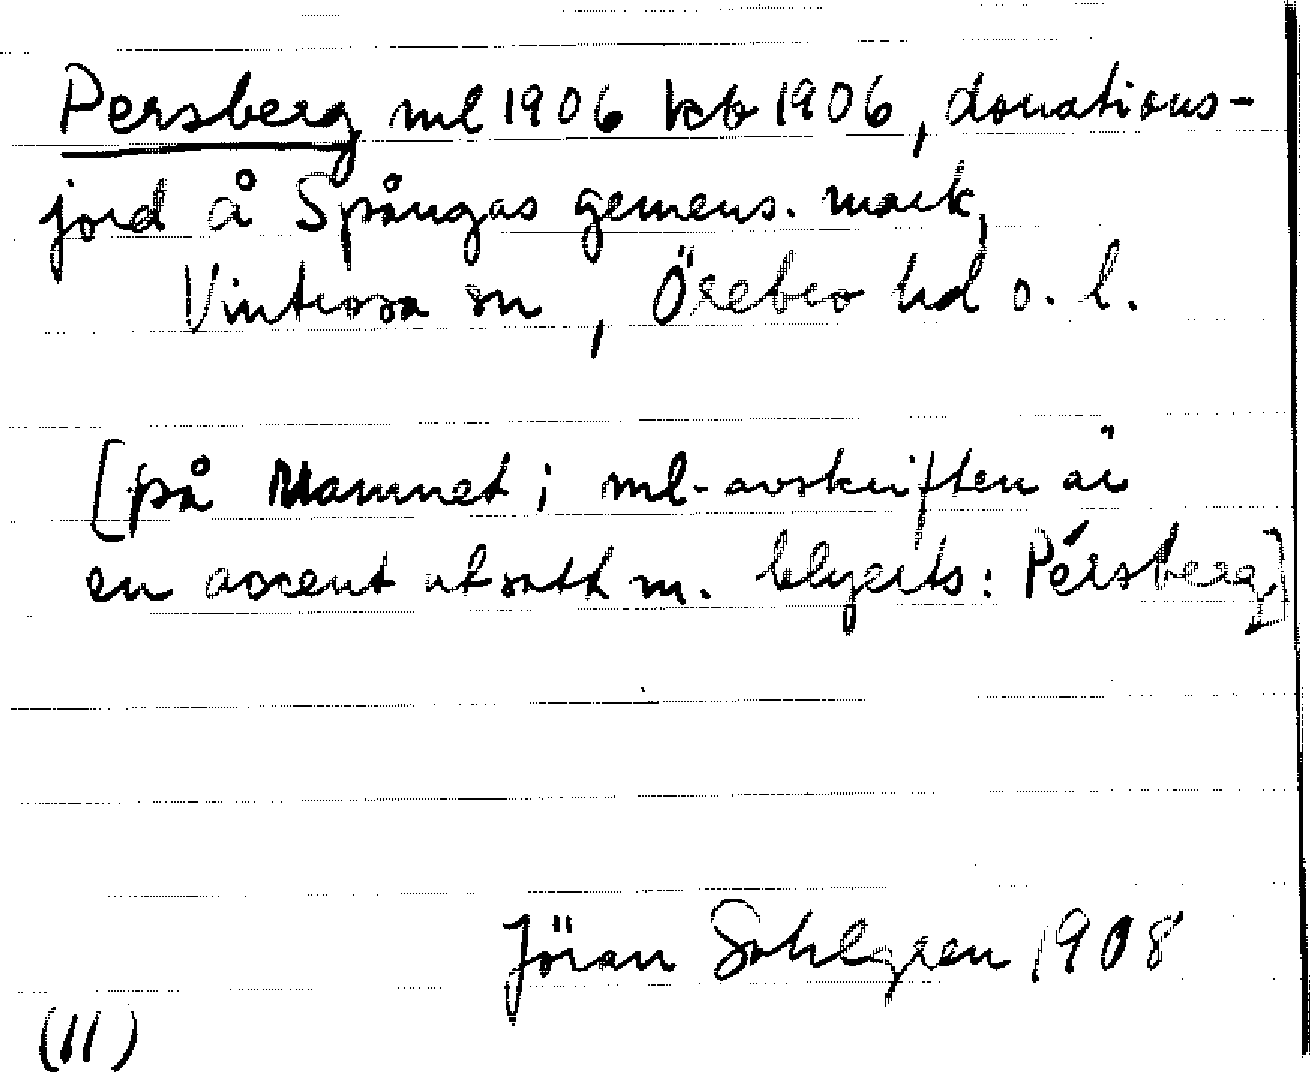 Persberg ml 1906 kb 1906, donations-
jord å Spångas gemens. mark,
Vintrosa sn, Örebro hd o. l.
[på Namnet i ml-avskriften är
en accent utsatt m. blyerts: Pérsberg]
Jöran Sahlgren 1908
(11)